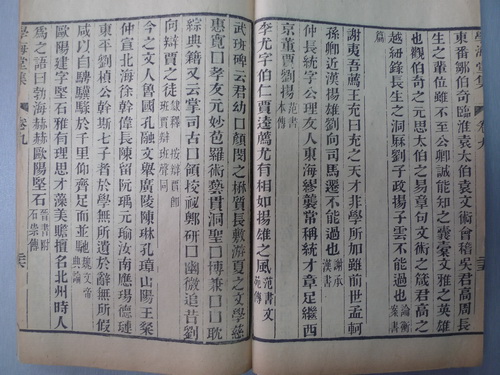 東番鄒伯奇臨淮袁太伯袁文術會稽吳君高周長
生之輩位雖不至公卿誠能知之囊橐文雅之英雄
也觀伯奇之元思太伯之易章句文術之箴君高之
越紐錄長生之洞厤劉子政揚子雲不能過也論衡案書
篇
謝夷吾薦王充曰充之天才非學所加雖前世孟軻
孫卿近漢揚雄劉向司馬遷不能過也謝承漢書
仲長統字公理友人東海繆襲常稱統才章足繼西
京董賈劉揚范書本傳
李尤字伯仁賈逵薦尤有相如揚雄之風范書文苑傳
武班碑云君幼囗顏閔之楙質長敷游夏之文學慈
惠寬囗孝友元妙苞羅術藝貫洞聖囗博兼囗囗耽
綜典籍又云掌司古囗領校祕鄭研囗幽微追昔劉
向辯賈之徒隸釋 按辯賈即班賈辯班聲同
今之文人魯國孔融文舉廣陵陳琳孔璋山陽王粲
仲宣北海徐幹偉長陳留阮瑀元瑜汝南應瑒德璉
東平劉楨公幹斯七子者於學無所遺於辭無所假
咸以自騁驥騄於千里仰齊足而並馳魏文帝典論
歐陽建字堅石雅有理思才藻美贍擅名北州時人
爲之語曰勃海赫赫歐陽堅石晉書附石崇傳
學海堂集 卷九